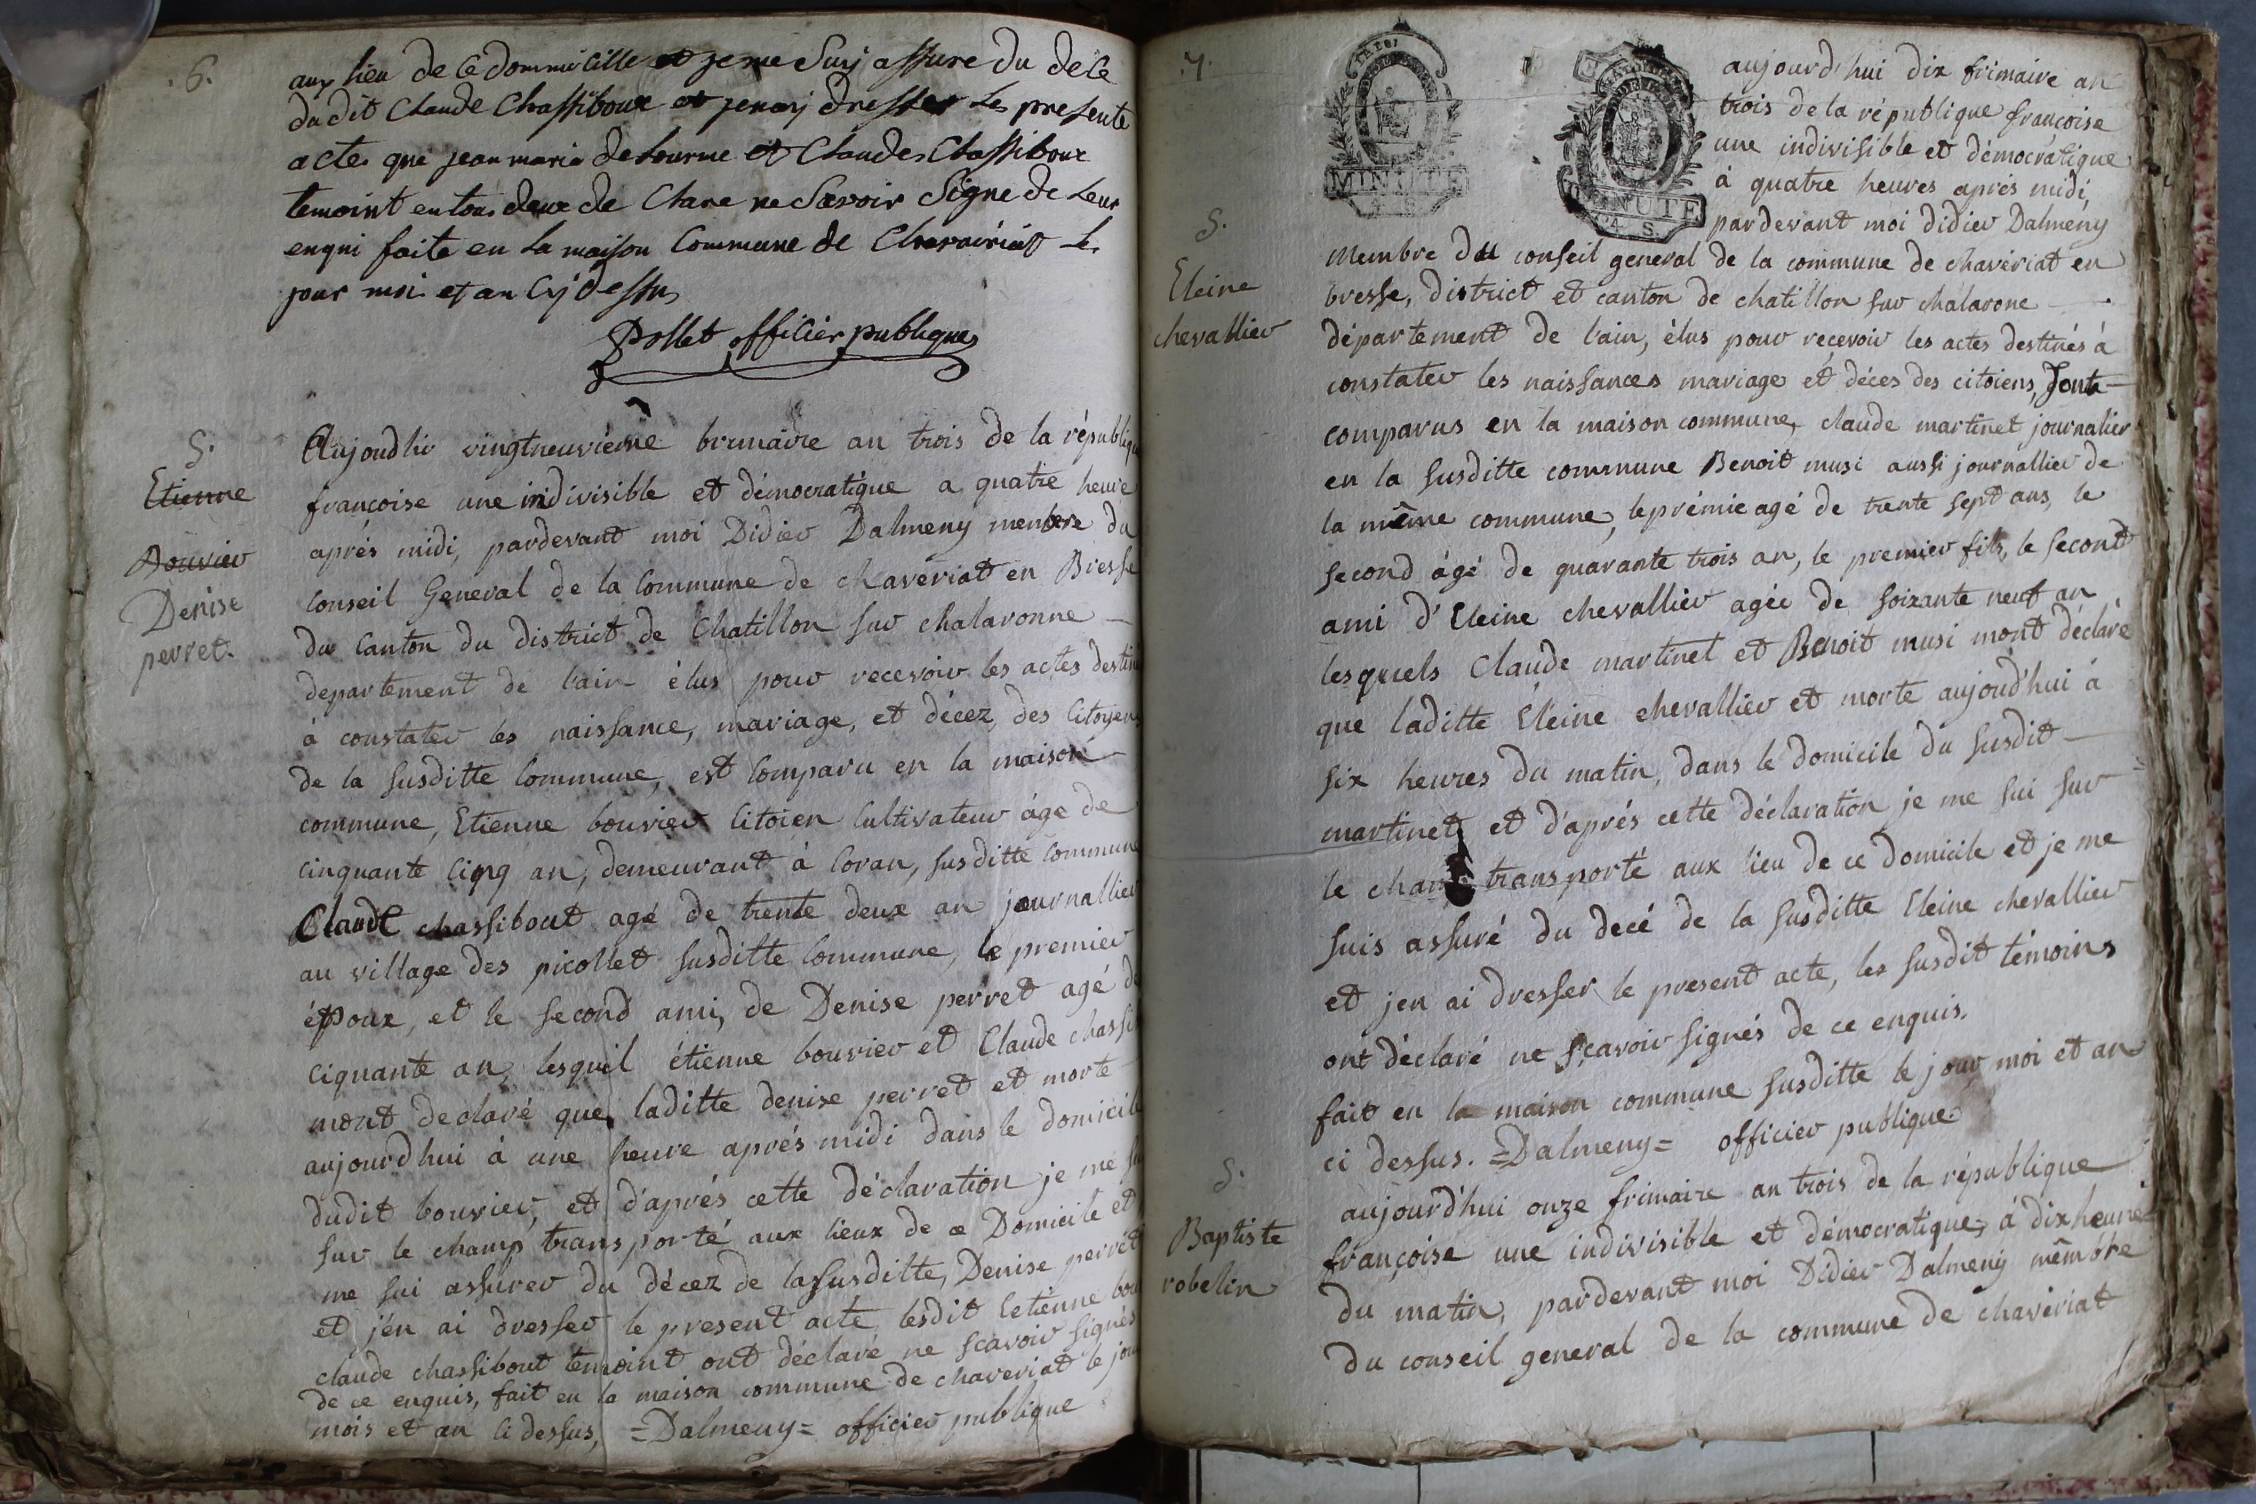 .6.
aux lieu de Ce dommicille et je me Suij assure du dece
du dit Claude Chassiboux et jenaij dresser Le presente
acte que jean marie deLourme et Claude Chassiboux
temoint en tous deux de Clare ne Savoir Signe de Leur
enqui faite en La maison Commune de Chavairiat Le
jour moi et an Cij dessus
Pollet officier publique
S.
Etienne
Bouvier
Denise
perret.
Aujoudhir vingtneuvieme brumaire an trois de la républiq
françoise une indivisible et démocratique a quatre heure
aprés midi, pardevant moi Didier Dalmeny membre du
Conseil General de la Commune de chavériat en Bresse
du Canton du district de Chatillon sur chalaronne
departement de l'ain élus pour recevoir les actes destin
à constater les naissance, mariage, et décez, des Citoyens
de la susditte Commune, est Comparu en la maison
commune, Etienne bouvier Citoien Cultivateur âge de
cinquante Cinq an, demeurant à Coran, susditte Commune
Claude chassibout agé de trente deux an journallier
au village des picollet susditte Commune, le premier
époux, et le second ami, de Denise perret agé de
ciquante an, lesquil étienne bouvier et Claude chassi
mont declaré que laditte denise perret et morte
aujourdhui à une heure aprés midi dans le domicile
dudit bouvier, et d'aprés cette déclaration je me su
sur le champ transporté aux lieux de ce Domicile et
me sui assurer du décez de la susditte, Denise perret
et j'en ai dresser le present acte, lesdit Letienne bou
claude chassibout temoint ont déclaré ne scavoir signés
de ce enquis, fait en la maison commune de chaveriat le jour
mois et an ci dessus, =Dalmeny= officier publique
.7.
MINUTE
MINUTE
4. S.
aujourd'hui dix frimaire an
trois de la république françoise
une indivisible et démocratique
à quatre heures aprés midi,
pardevant moi didier Dalmeny
S.
Eleine
chevallier
Membre du conseil general de la commune de chavériat en
bresse, district et canton de chatillon sur chalarone
département de l'ain, élus pour reçevoir les actes destinés à
constater les naissances mariage et déces des citoiens, Sont
comparus en la maison commune, claude martinet journalier
en la susditte commune Benoit musi aussi journallier de
la même commune, le prémie agé de trente sept ans, le
second âgé de quarante trois an, le premier fils, le second
ami d'Eleine chevallier agée de soixante neuf an
lesquels Claude martinet et Benoit musi mont déclaré
que laditte Eleine chevallier et morte aujourd'hui à
six heures du matin, dans le domicile du susdit
martinet et d'aprés cette déclaration je me sui sur
le cham transporté aux lieu de ce domicile et je me
suis assuré du decé de la susditte Eleine chevallier
et jen ai dresser le present acte, les susdit témoins
ont déclaré ne scavoir signés de ce enquis.
fait en la maison commune susditte le jour moi et an
ci dessus. =Dalmeny= officier publique
S.
Baptiste
robelin
aujourd'hui onze frimaire an trois de la république
françoise une indivisible et démocratique, à dix heure
du matin, pardevant moi Didier Dalmeny membre
du conseil general de la commune de chavériat